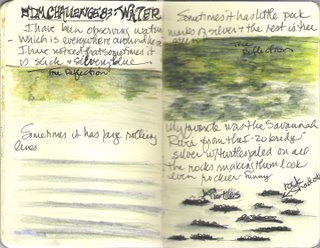 #IDM CHALLENGE 83: WATER
I have been observing water
- Which is everywhere around here
I have noticed that sometimes it
is slick & silvery blue
tree reflection
Sometimes it has large rolling
lines
Sometimes it has little pock
marks of silver & the rest is tree
tree Reflection
My favorite was the Savannah
River from the I-20 bridge
silver w/ turtles piled on all
the rocks making them look
even rockier. Funny
turtles
rock